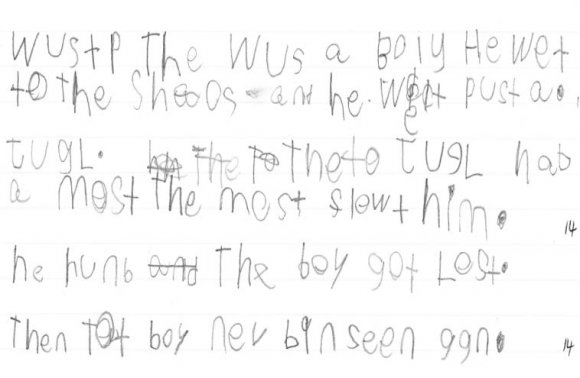 WUStP The WUS a boiy He wet
to the Sheods and he. Went PUST a.
TUGL. The The to TUGL hab
a most The most slowt him.
14
he hunb and The boy got Lost.
Then Tat boy nev bin seen ggn.
14